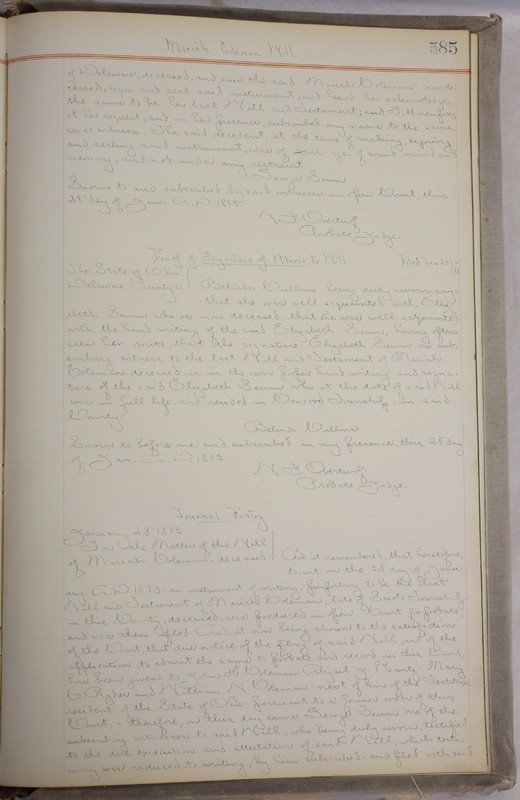 Mariah Coleman Will
585
of Delaware, deceased, and saw the said Mariah Coleman now de-
ceased, sign and seal said instrument, and heard her acknowledge
the same to be her last Will and Testament; and I, thereupon
at her request, and in her presence, subscribed my name to the same
as a witness. The said decedent, at the time of making, signing
and sealing said instrument, was of full age of sound mind and
memory, and not under any restraint.
George
Sworn to and subscribed by said witnesses in open Court, this
28" day of Jan. A.D. 1893.
N. F. Overturf
Probate Judge.
Proof of Signature of to Will
Filed Jan 28/
The State of Ohio
Delaware County
Belinda being duly sworn, says
that she was well acquainted with Eliz-
abeth who is now deceased that he was well acquainted
with the hand writing of the said Elizabeth having often
seen her write, that the signature Elizabeth as sub-
scribing witness to the last Will and Testament of Mariah
Coleman deceased, is in the own proper hand writing and signa-
ture of the said Elizabeth who at the date of said Will
was in full life, and resided in Concord Township, in said
County
Belinda
Sworn to before me, and subscribed in my presence, this 28 day
of Jan. A.D. 1893
N. F. Overturf.
Probate Judge.
Journal Entry
January 28" 1893
In the Matter of the Will
of Mariah Coleman, deceased
Be it remembered, that heretofore,
to wit, on the 28 day of Janu-
ary. A.D. 1893. an instrument of writing, purporting to be the last
Will and Testament of Mariah Coleman, late of Township,
in this County, deceased, was produced in open Court for probate
and was then filed And, it now being shown to the satisfaction
of the Court, that due notice of the filing of said Will, and of the
application to admit the same to probate and record in this Court,
has been given to John H Coleman, Mary
C. Ryder and William N Coleman next of kin of the testatrix
resident of the State of Ohio. Pursuant to a former order of this
Court, - therefore, on this day came George one of the
subscribing witnesses to said Will, who being duly sworn, testified
to the due execution and attestation of said Will, which testi-
mony was reduced to writing, by him subscribed and filed with said